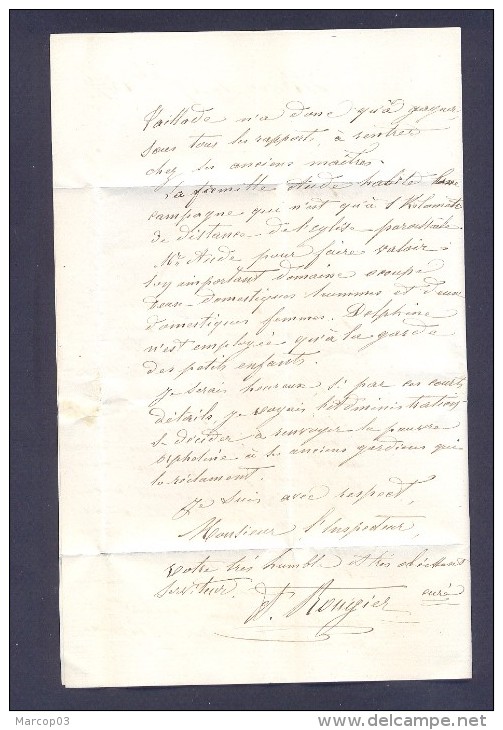 Taillade n'a donc qu'à gagner,
sous tous les rapports, à rentrer
chez ses anciens maîtres.
La famille Aude habite une
campagne qui n'est qu'à 1 Kilomètre
de distance de l'église paroissiale.
Mr Aude pour faire valoir
important domaine occupe
deux domestiques hommes et deux
domestiques femmes. Delphine
n'est employée qu'à la garde
des petits enfants.
Je serais heureux, si par ces courts
détails, je voyais l'administration
se décider à renvoyer la pauvre
orpheline à ses anciens gardiens qui
la réclament.
Je suis avec respect,
Monsieur l'Inspecteur,
votre très humble et très obéissant
serviteur.
Rougier curé
Marcop03